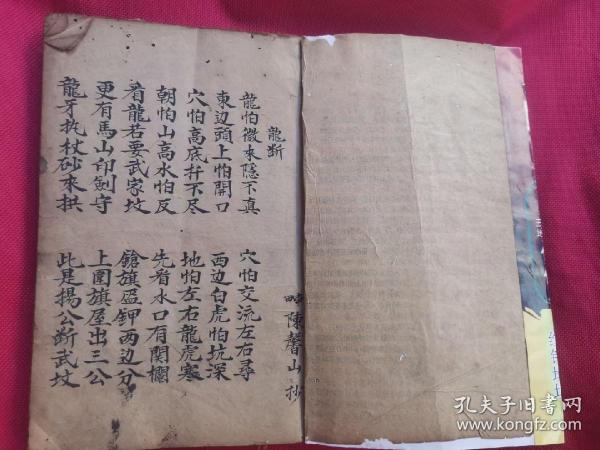 龍断
龍怕微来隱不真 穴怕交流左右尋
東边頭上怕開口 西边白虎怕坑深
穴怕高底杆不尽 地怕左右龍虎寒
朝怕山高水怕反 先看水口有関欄
看龍若要武家坟 鎗旗盔鉀两边分
更有馬山印劍守 上圍旗屋出三公
龍牙执杖砂来拱 此是揚公断武坟
陳馨山抄
孔夫子旧书网
www.kongfz.com